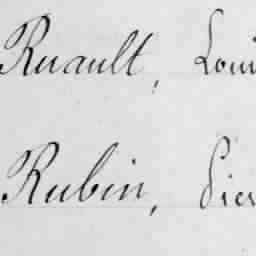 Ruault, Loui
Rubin, Pier